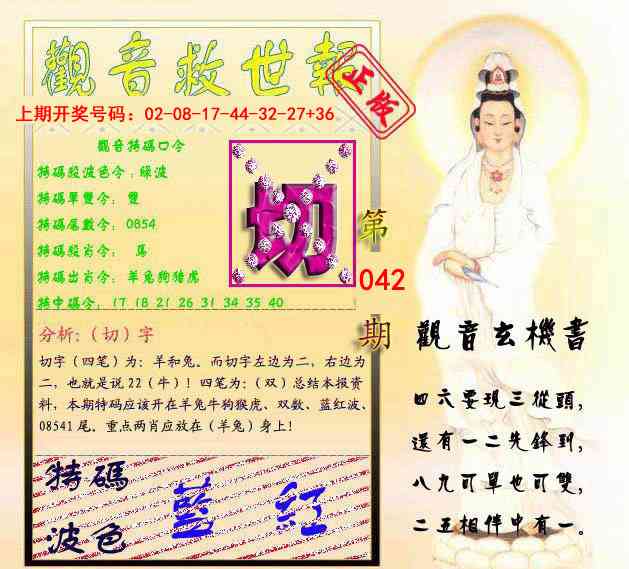 觀音救世報
正版
上期开奖号码：02-08-17-44-32-27+36
觀音特碼口令
特碼殺波色令：綠波
特碼單雙令：雙
特碼尾數令：0854
特碼殺肖令：馬
特碼出肖令：羊兔狗猪虎
特中碼令：17 18 21 26 31 34 35 40
切
第
042
期
分析：（切）字
切字（四笔）为：羊和兔。而切字左边为二，右边为
二，也就是说22（牛）！四笔为：（双）总结本报资
料，本期特码应该开在羊兔牛狗猴虎、双数、蓝红波、
08541尾。重点两肖应放在（羊兔）身上！
特碼
波色
藍 紅
觀音玄機書
四六要現三從頭，
還有一二先鋒到，
八九可單也可雙，
二五相伴中有一。